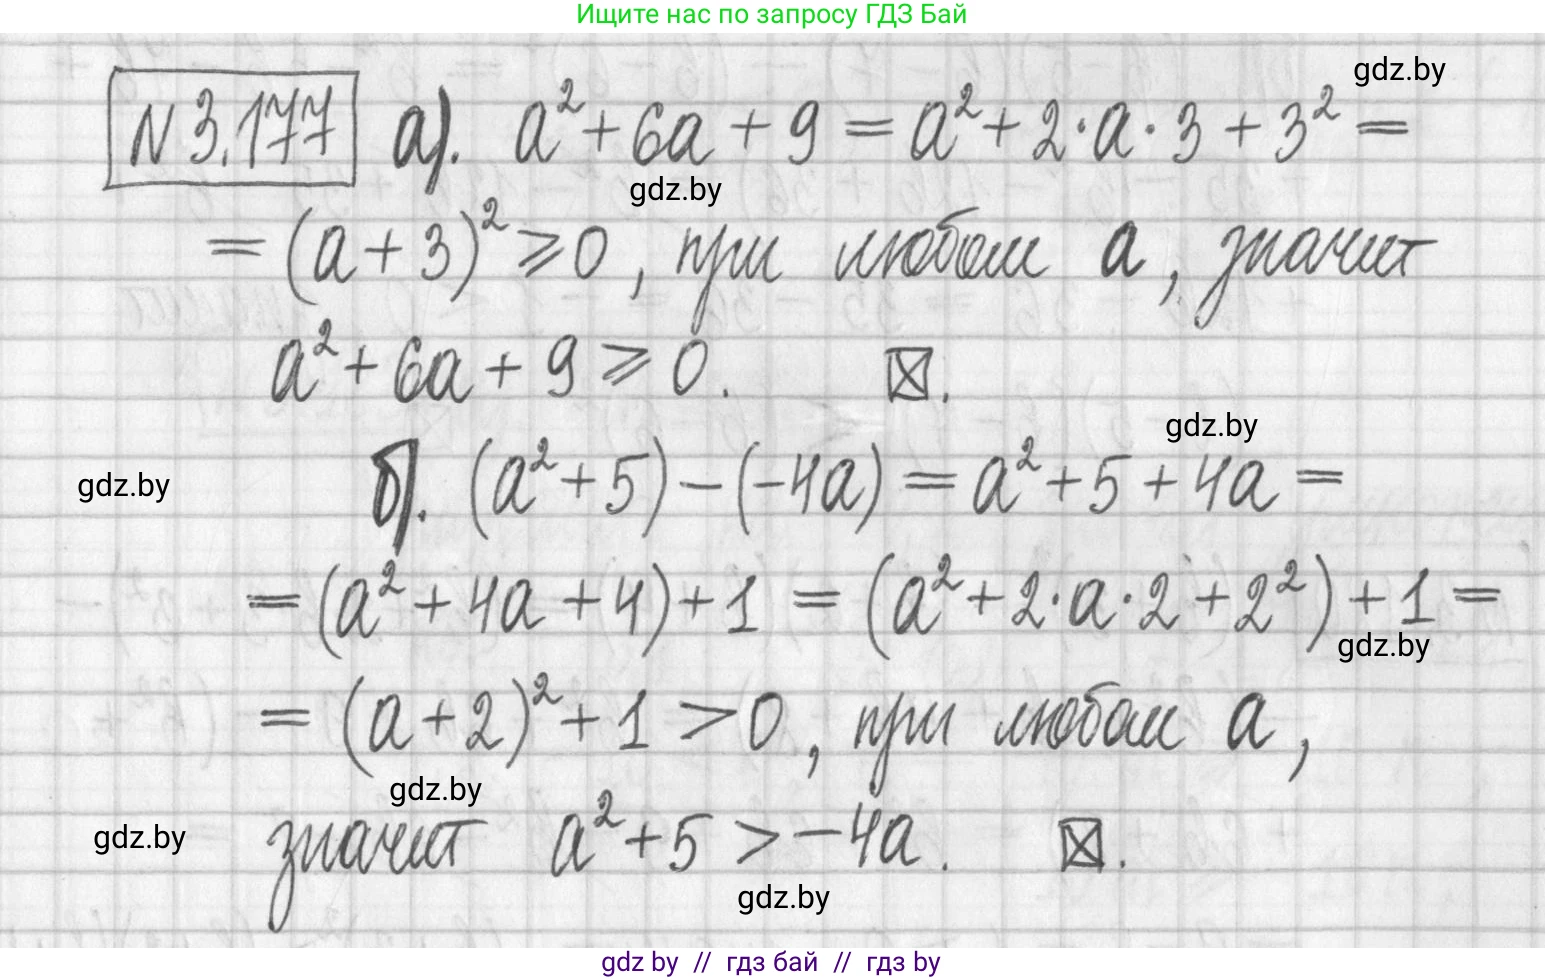 Ищите нас по запросу ГДЗ Бай
gdz.by
N 3.177 а). a² + 6a + 9 = a² + 2·a·3 + 3² =
gdz.by
= (a + 3)² ⩾ 0, при любом a, значит
a² + 6a + 9 ⩾ 0. ☒.
gdz.by
gdz.by
б). (a² + 5) − (−4a) = a² + 5 + 4a =
= (a² + 4a + 4) + 1 = (a² + 2·a·2 + 2²) + 1 =
gdz.by
= (a + 2)² + 1 > 0, при любом a,
gdz.by
gdz.by
значит a² + 5 > −4a. ☒.
gdz.by
gdz by // гдз бай // гдз by